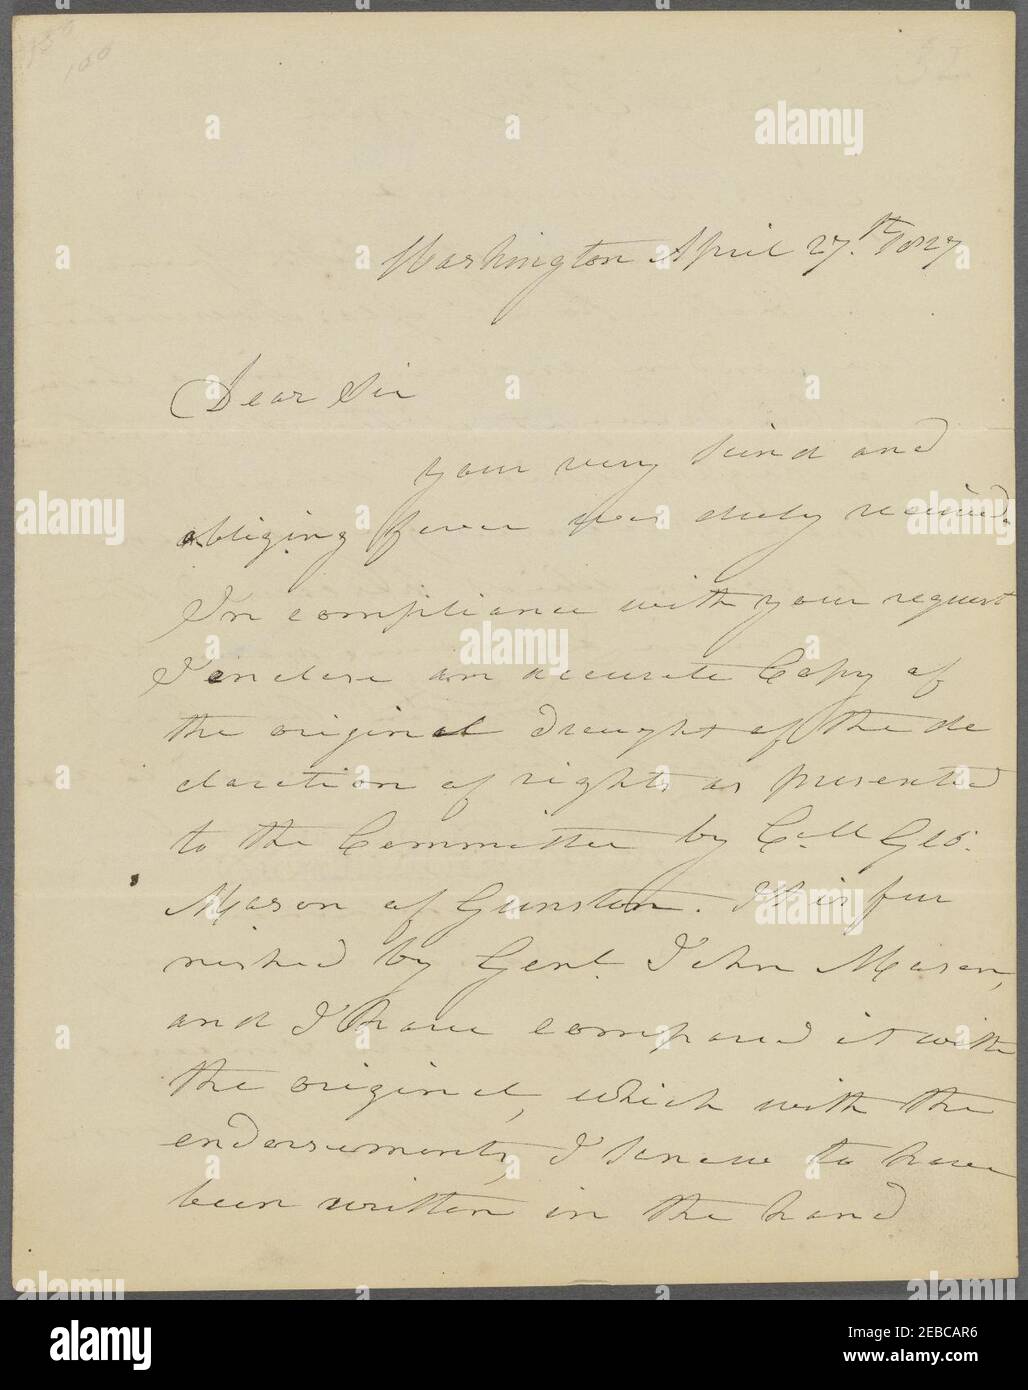 Washington April 27.th 1827
Dear Sir
your very kind and
obliging favor was duly received.
In compliance with your request
I enclose an accurate Copy of
the original draught of the de
claration of rights as presented
to the Committee by Coll Geo.
Mason of Gunston. It is fur
nished by Genl. John Mason,
and I have compared it with
the original, which with the
endorsements, I know to have
been written in the hand
alamy
Image ID: 2EBCAR6
www.alamy.com